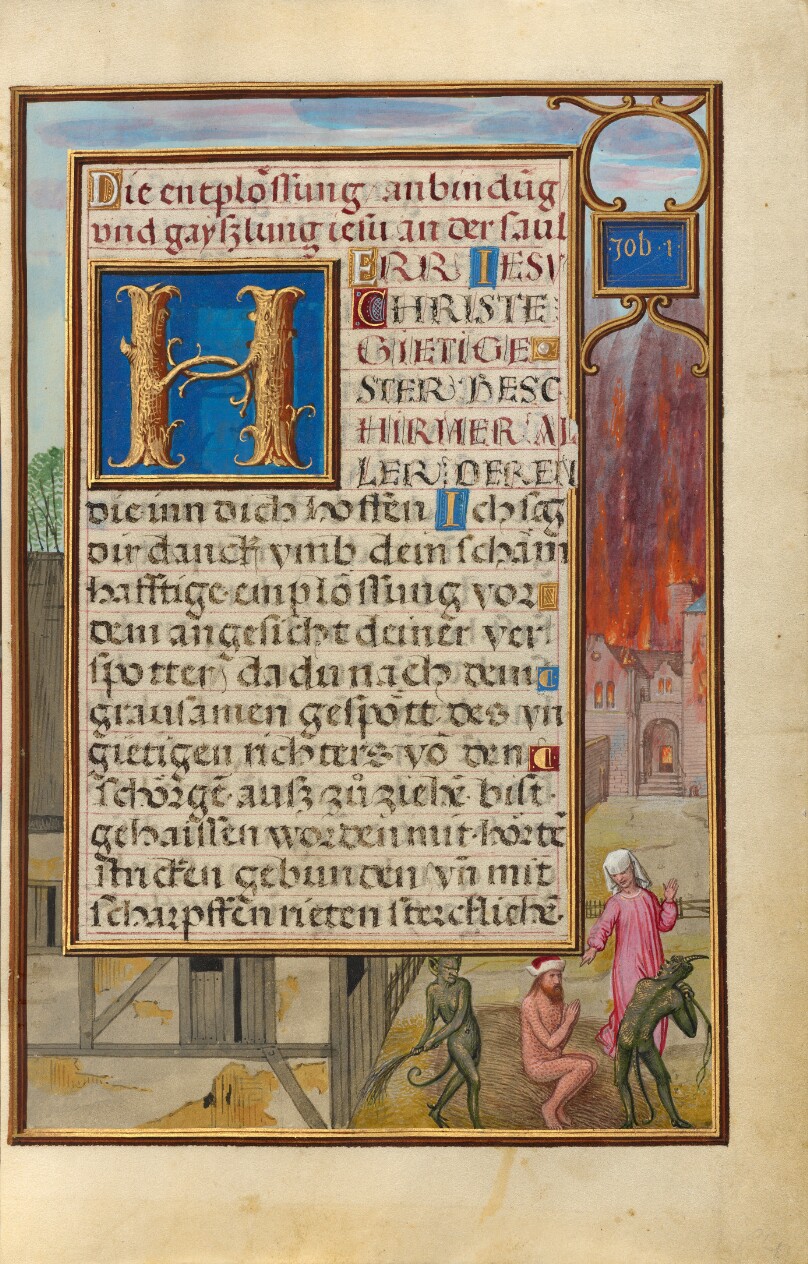 Die entplössung anbindūg
vnd gayszlung iesu an der saul
ERR IESV
CHRISTE
GIETIGE
STER BESC
HIRMER AL
LER DEREN
die inn dich hoffen Ich sag
dir danck vmb dein scham
hafftige emplössung vor
dem angesicht deiner ver
spotter da du nach dem
grausamen gespött des vn
gietigen richters vō den
schörgē ausz zů ziehē bist
gehaissen worden mit hörtē
stricken gebunden vn̄ mit
scharpffen rieten stercklichē
Job 1